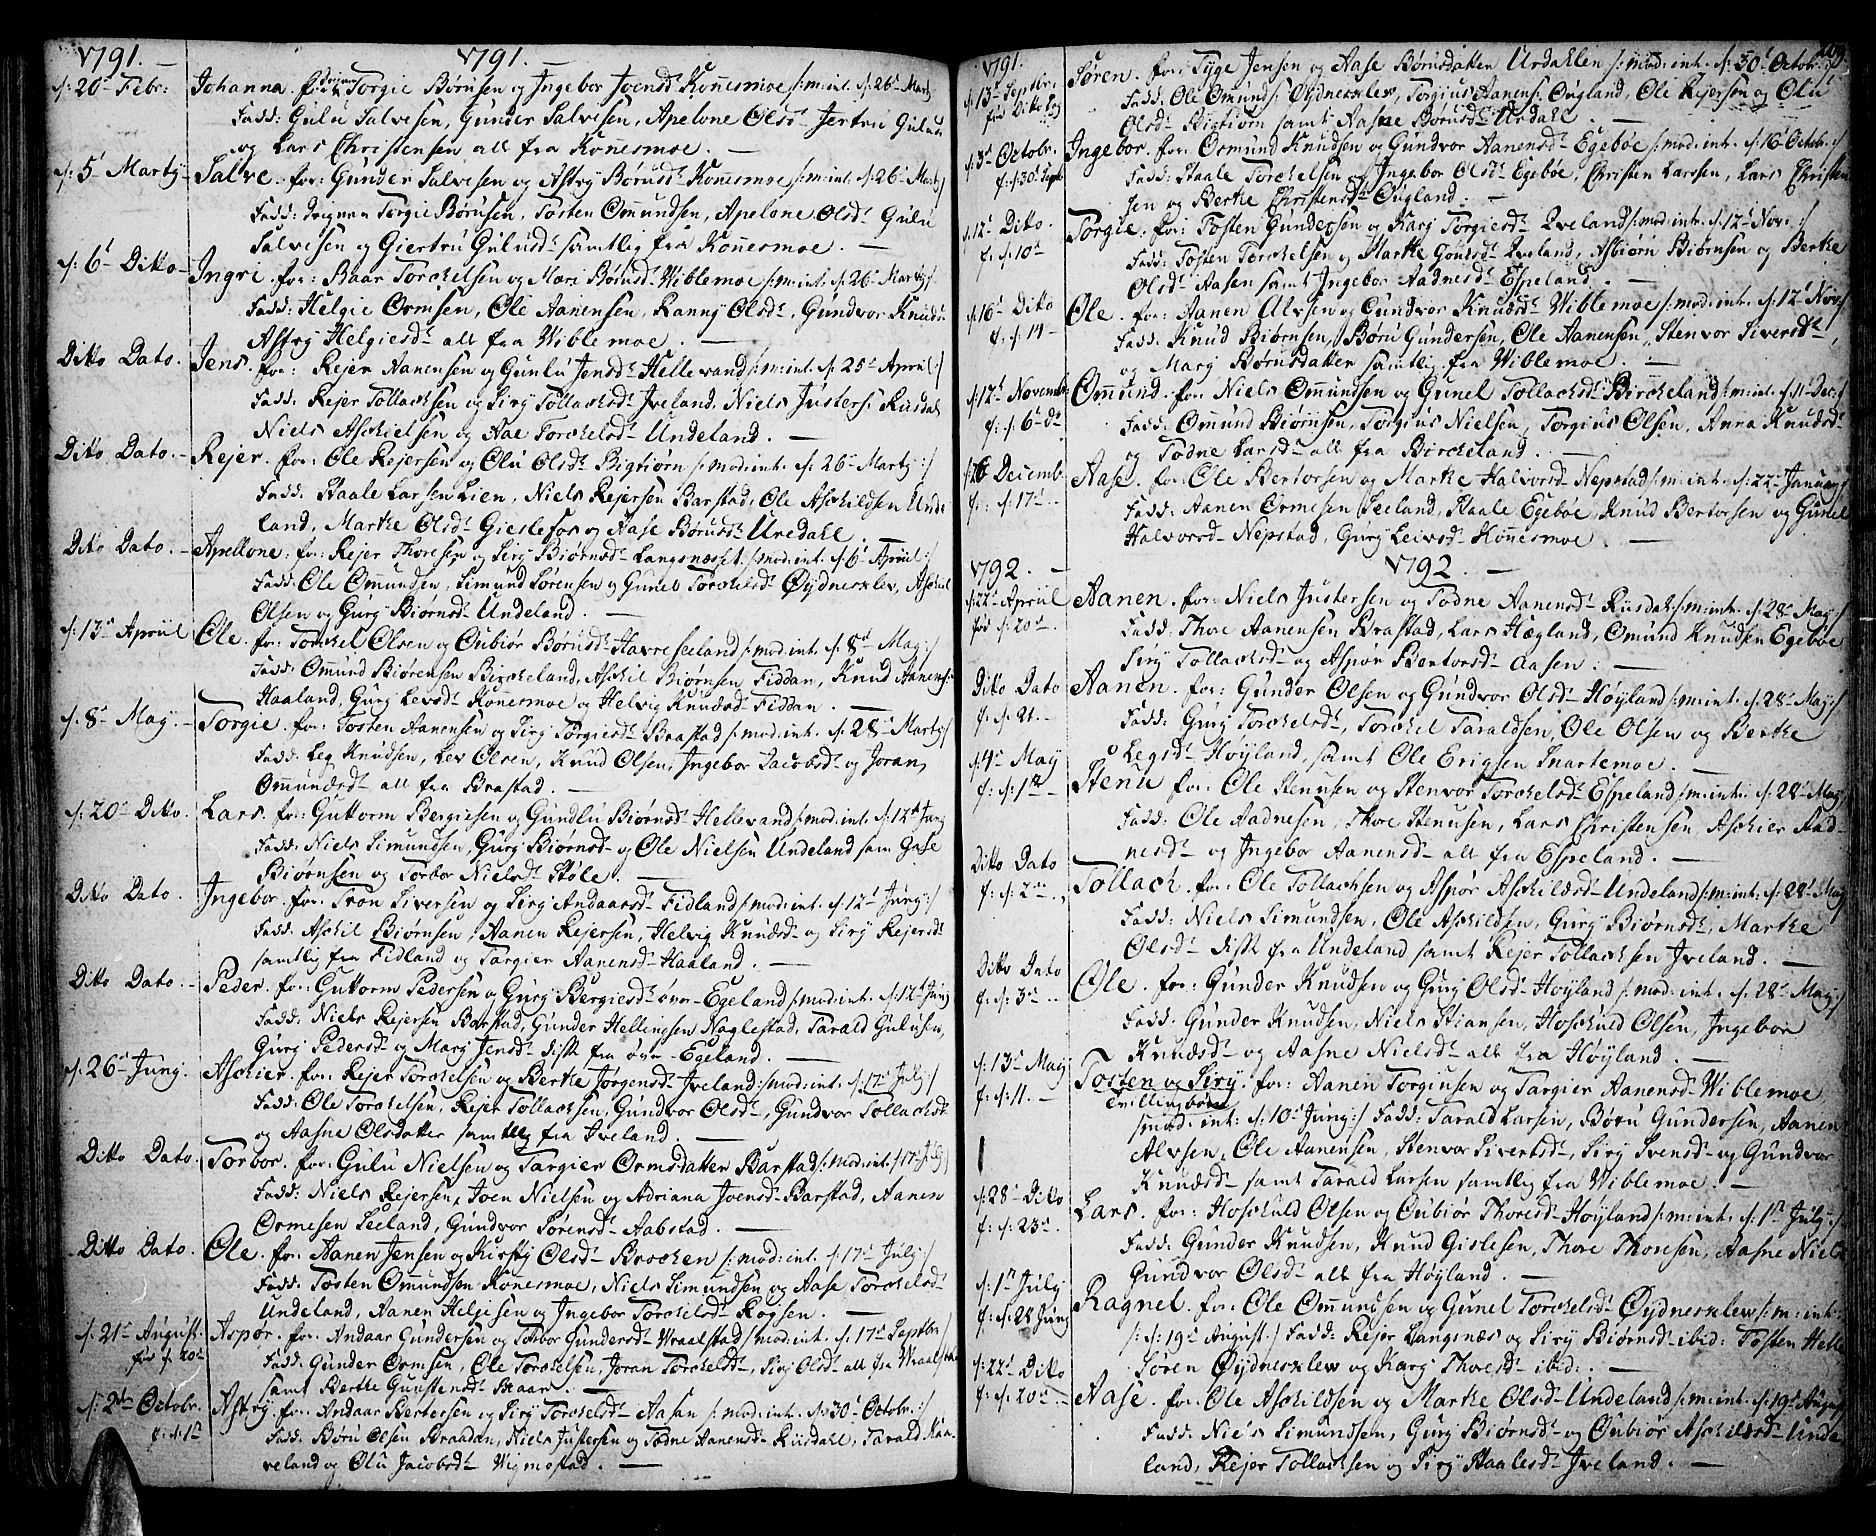 1791. 1791.
s: 20' Febr: Johanna. for: Torgie Børusen og Ingebor Joensd: Konesmoe /: m: int. s: 26' Marty
Fadd: Gulu Salvesen, Gunder Salvesen, Apelone Olsd: Jertru Guluu
og Lars Christensen all fra Konesmoe. —
s: 5' Marty - Salve. for: Gunder Salvesen og Astry Børusd: Konesmoe /: m: int. s: 26' Marty
Fadd: Torgie Børusen, Tosten Ommundsen, Apelone Olsd: Gulu
Salvesen og Giertru Gulusd: samtlig fra Konesmoe. —
s: 6' Ditto - Ingri. for: Baar Torckelsen og Mari Børusd: Wiblemoe /: m: int. s: 26' Marty :/
Fadd: Helgie Ormsen, Ole Aanensen, Ranny Olsd:, Gundvor Knuds:
Astry Helgiesd: all fra Wiblemoe. —
Ditto Dato. Jens. for: Rejer Aanensen og Gunlu Jensd: Hellevand /: m: int. s: 25' Aprül :/
Fadd: Rejer Tollachsen og Siry Tollachsd: Jveland, Niels Justers: Rusdal
Niels Aschielsen og Aae Torckelsd: Undeland. —
Ditto Dato. - Rejer. for: Ole Rejersen og Olu Olsd: Bigtiørn /: mod: int. s: 26' Marty :/
Fadd: Staale Larsen Lien, Niels Rejersen Barstad, Ole Aschildsen Unde
land, Marthe Olsd: Gieslefos og Aase Børusd: Uredahl. —
Ditto Dato. - Apellone: for: Rejer Thoresen og Siry Biørnsd: Langenæsset. /: mod: int. s: 6' Aprül :/
Fadd: Ole Ommundsen, Simund Sørensen og Gunel Torckelsd: Øydnesxlev, Aschil
Olsen og Gurg Biørnsd: Undeland. —
s: 13' Aprül Ole. for: Torckel Olsen og Oubiør Børusd: Havreseeland /: mod: int. s: 8' May :/
Fadd: Ommund Biørensen Birckeland, Aschil Biørnsen Fiddan, Knud Aanens:
Haaland, Gurg Levsd: Konnesmoe og Helvig Knudsd: Fiddan. —
s: 8' May. - Torgie. for: Tosten Aanensen og Siry Torgiesd: Brastad /: mod: int. s: 28' Marty :/
Fadd: Leg Knudsen, Lev Olsen, Knud Olsen, Ingebor Jacobsd: og Joran
Ommundsd: all fra Brastad. —
s: 20' Ditto. Lars. for: Guttorm Bergiesen og Gundlu Biørnsd: Hellevand /: mod: int. s: 12' Juny
Fadd: Niels Simundsen, Gurg Biørnsd: og Ole Nielsen Undeland sam Gase
Biørnsen og Torbor Nielsd: Støle. —
Ditto Dato. Ingebor. for: Tron Siversen og Siry Andaarsd: Fidland /: mod: int. s: 12' Juny :/
Fadd: Aschil Biørnsen, Aanen Rejersen, Helvig Knudsd: og Siry Rejersd:
samtlig fra Fidland og Targier Aanensd: Haaland. —
Ditto Dato. - Peder. for: Guttorm Pedersen og Gurg Bergiesd: øvre Egeland /: mod: int. s: 12' Juny
Fadd: Niels Rejersen Barstad, Gunder Hellingsen Naglestad, Tarald Gulusen,
Gurg Pedersd: og Mary Jensd: disse fra øvre Egeland. —
s: 26' Juny. Aschier. for: Rejer Torckelsen og Berthe Jørgensd: Jveland /: mod: int. s: 17' July :/
Fadd: Ole Torckelsen, Rejer Tollachsen, Gundvor Olsd:, Gundvor Tollachsd:
og Aasne Olsdatter samtlig fra Jveland. —
Ditto Dato. Torbor. for: Gulu Nielsen og Targier Ormsdatter Barstad /: mod: int: s: 17' July
Fadd: Niels Rejersen, Joen Nielsen og Adriana Joensd: Barstad, Aanen
Ormesen Seeland, Gundvor Sørensd: Aabstad. —
Ditto Dato. Ole. for: Aanen Jensen og Kirsty Olsd: Brocken /: mod: int. s: 17' July :/
Fadd: Tosten Ommundsen Konesmoe, Niels Simundsen og Aase Torckelsd:
Undeland, Aanen Helgesen og Ingebor Torckelsd: Rojsen. —
s: 21' August: Aspør. for: Andaar Gundersen og Torbor Gundersd: Wraalstad /: mod: int. s: 17' Septbr :/
fød s: 20' Fadd: Gunder Ormsen, Ole Torckelsen, Joran Torckelsd:, Siry Olsd: all fra Wraalstad
samt Berthe Gunstensd: Baar. —
s: 2' Octobr. Astry. for: Andaar Bertersen og Siry Torckelsd: Aasan /: mod: int. s: 30' Octobr. :/
f: s: 1' Fadd: Børu Olsen Braadan, Niels Justersen og Todne Aanensd: Rusdahl, Tarald Haa-
veland og Olu Jacobsd: Wigmostad. —
1791.
s: 13' Septbr. Søren. for: Tyge Jensen og Aase Børusdatter Urdahlen /: mod: int. s: 30' Octobr. :/
Fadd: Ole Omunds: Øydnesxlev, Torgius Aanens: Ougland, Ole Rejersen og Olu
Olsd: Bigtiørn samt Aasne Børusd: Urdahl. —
s: 3' Octobr. Ingebor. for: Osmund Knudsen og Gundvor Aanensd: Egebøe /: mod: int. s: 16' Octobr. :/
f: s: 30' Septb Fadd: Staale Torckelsen og Ingebor Olsd: Egebøe, Christen Larssen, Lars Christen
sen og Berthe Christensd: Ougland. —
s: 12' Ditto. Torgie. for: Tosten Gundersen og Karj Torgiesd: Qveland /: mod: int. s: 12' Nov. :/
f: s: 10' Fadd: Tosten Torckelsen og Marthe Gousd: Qveland, Asbiørn Biørnsen og Berthe
Olsd: Aasen samt Ingebor Aadnesd: Espeland. —
s: 16' Ditto Ole. for: Aanen Alvsen og Gundvor Knudsd: Wiblemoe /: mod: int. s: 12' Nov :/
f: s: 14 — Fadd: Knud Biørnsen, Børu Gundersen, Ole Aanensen, Stenvor Siversd:,
og Mary Børusdatter samtlig fra Wiblemoe. —
s: 12' Novembr Ommund. for: Niels Ommundsen og Gunel Tollachsd: Birckeland /: m: int. s: 11' Dec: :/
f: s: 6' do Fadd: Omund Biørnsen, Torgius Nielsen, Torgius Olsen, Anna Knudsd:
og Todne Larsd: all fra Birckeland. —
Decemb Aase. for: Ole Bertorsen og Marthe Halvorsd: Nepstad /: m: int. s: 22' January
f: s: 17' Fadd: Aanen Ormesen Seeland, Staale Egebøe, Knud Bertorsen og Gunel
Halvorsd: Nepstad, Gurg Leivsd: Konnesmoe. —
1792. — 1792. —
s: 22' Aprül Aanen. for: Niels Justersen og Todne Aanensd: Rusdal /: m: int. s: 28' May :/
fød s: 20' Fadd: Thore Aanensen Brastad, Lars Hægland, Omund Knudsen Egebøe
Siry Tollachsd: og Aspør Bertorsd: Aasen. —
Ditto Dato Aanen. for: Gunder Olsen og Gundvor Olsd: Høyland /: m: int. s: 28' May :/
f: s: 21. Fadd: Gurg Torckelsd:, Torckel Taraldsen, Ole Olsen og Berthe
Legsd: Høyland, samt Ole Erigsen Snartemoe. —
s: 4' May Stenu for: Ole Stenusen og Stenvor Torckelsd: Espeland /: m: int. s: 28' May
f: s: 1' Fadd: Ole Aadnesen, Thore Stenusen, Lars Christensen, Aschier Aad-
nesd: og Ingebor Aanensd: all fra Espeland. —
Ditto Dato Tollach. for: Ole Tollachsen og Aspør Aschildsd: Undeland /: m: int. s: 28' May
f: s: 2' Fadd: Niels Simundsen, Ole Aschildsen, Gurg Biørnsd:, Marthe
Olsd: disse fra Undeland samt Rejer Tollachsen Jveland. —
Ditto Dato Ole. for: Gunder Knudsen og Gurg Olsd: Høyland /: mod: int. s: 28' May :/
f: s: 3' Fadd: Gunder Knudsen, Niels Stiansen, Hoschuld Olsen, Ingebor
Knudsd: og Aasne Nielsd: all fra Høyland. —
s: 13' May Tosten og Siry. for: Aanen Torgiusen og Targier Aanensd: Wiblemoe
f: s: 11. — Tvillingbørn
/: mod. int: s: 10' Juny :/ Fadd: Tarald Larsen, Børu Gundersen, Aanen
Alvsen, Ole Aanensen, Stenvor Sivertsd:, Siry Svensd: og Gundvor
Knudsd: samt Tarald Larsen samtlig fra Wiblemoe. —
s: 28' Ditto Lars. for: Hoschuld Olsen og Oubiør Thoresd: Høyland /: m: int. s: 1' July :/
f: s: 23' Fadd: Gunder Knudsen, Knud Gislesen, Thore Thoresen, Aasne Niels
Gundvor Olsd: all fra Høyland. —
s: 1' July Ragnel. for: Ole Ommundsen og Gunel Torckelsd: Øydnesxlev /: m: int:
f: s: 24 Juny /: s: 19' August :/ Fadd: Rejer Langnæs og Siry Biørnsd: ibid: Tosten Helle
Søren Øydnesxlev og Karj Thoresd: ibid: —
s: 22' Ditto Aase. for: Ole Aschildsen og Marthe Olsd: Undeland /: m: int. s: 19' August
f: s: 20' Fadd: Niels Simundsen, Gurg Biørnsd: og Oubiør Aschildsd: Unde
land, Rejer Tollachsen og Siry Staalesd: Jveland. —